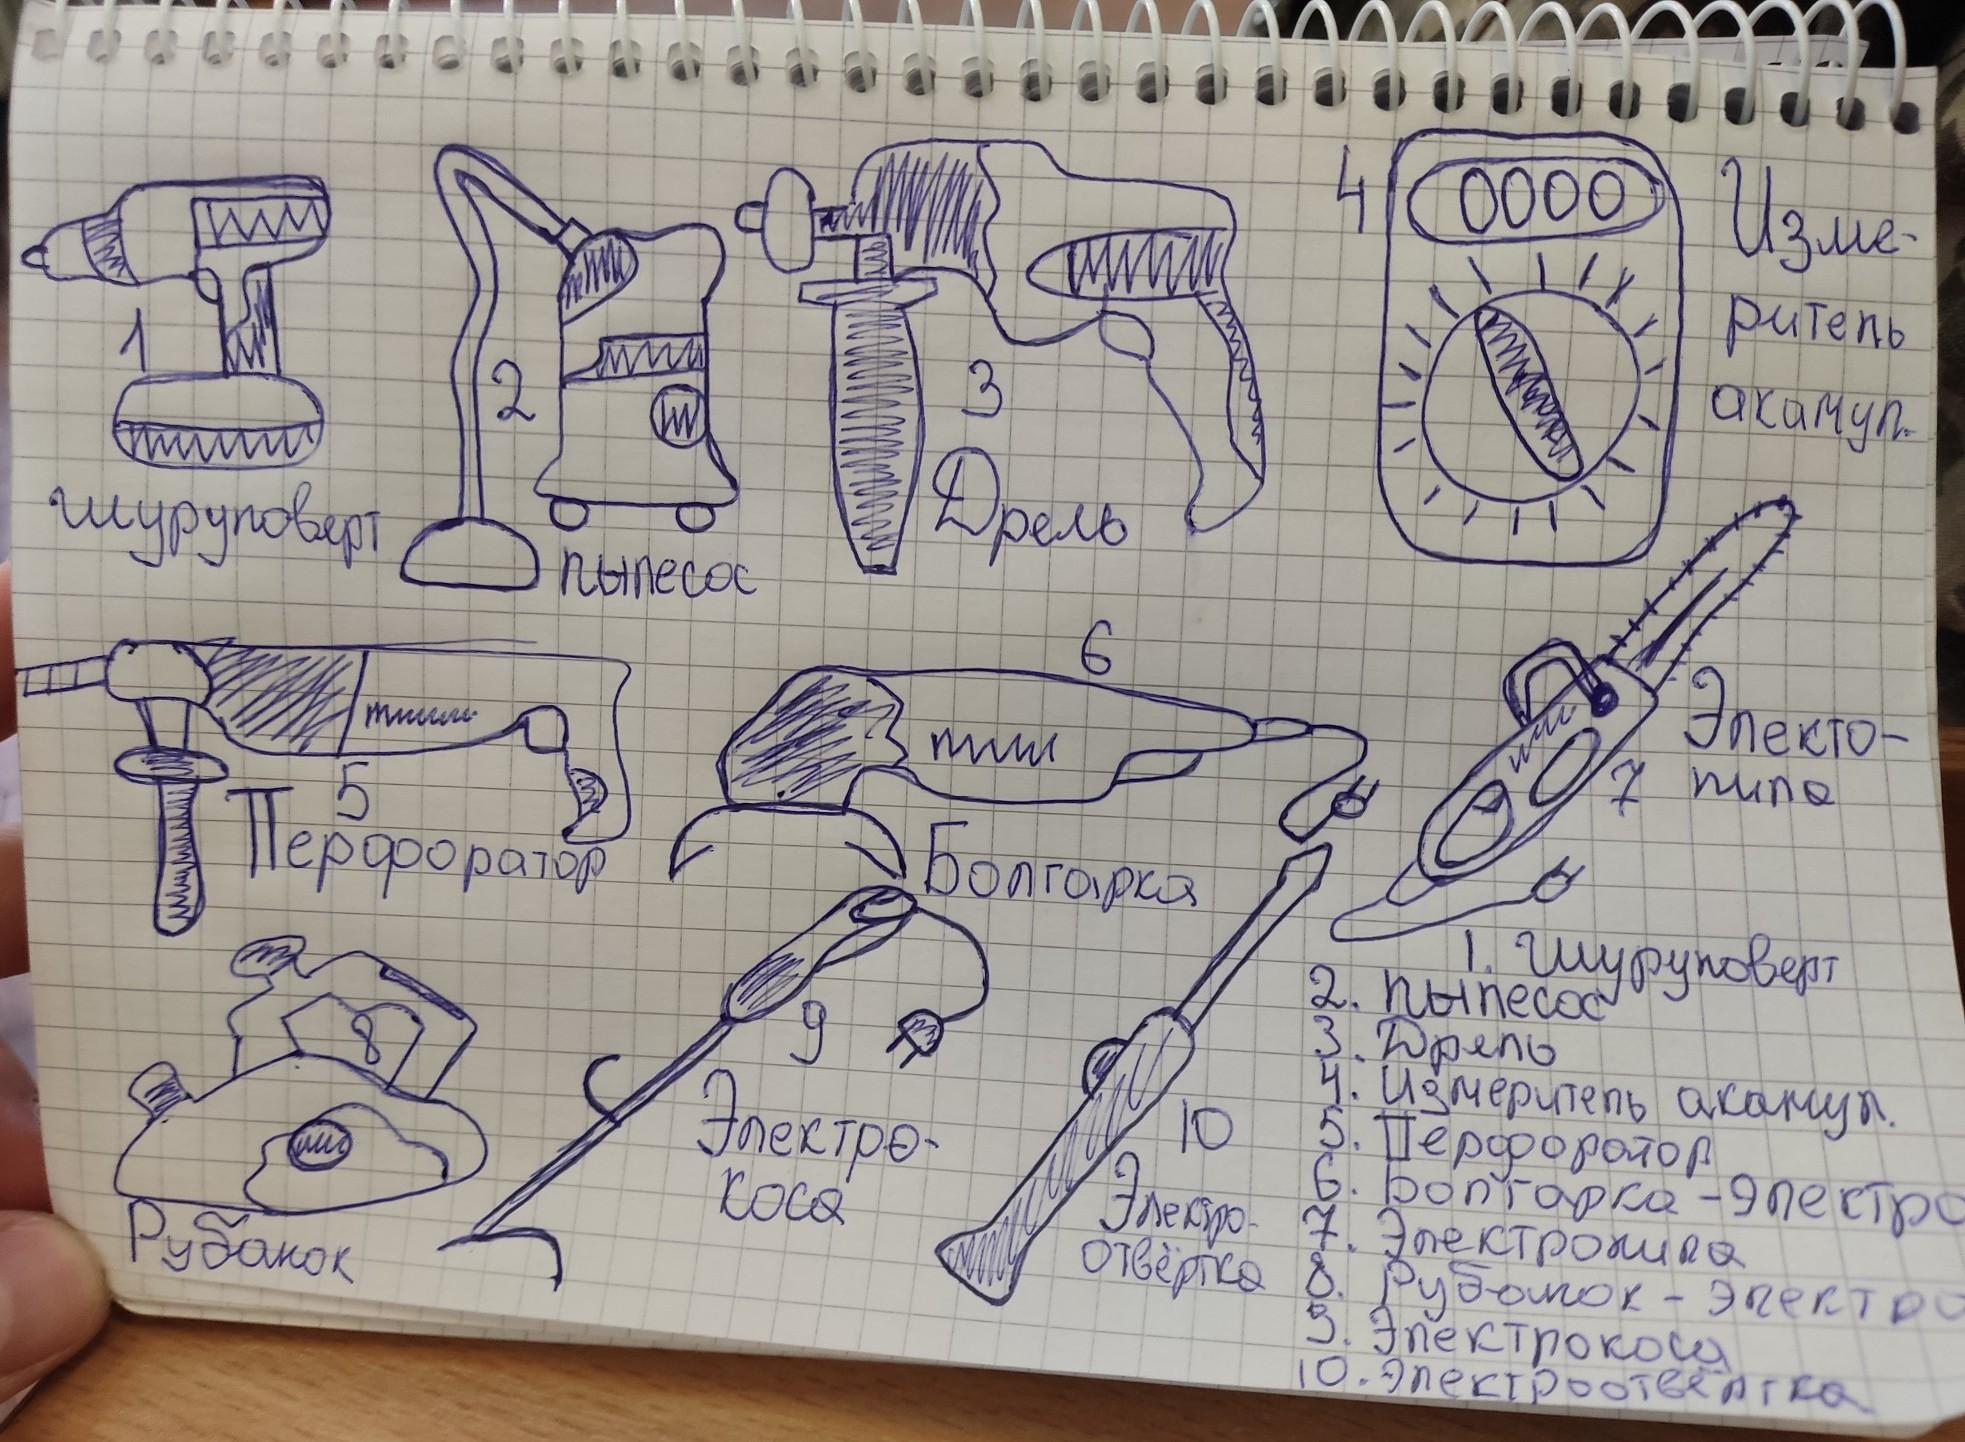 1
шуруповерт
2
пылесос
3
Дрель
4
0000
Изме-
ритель
акамул.
5
Перфоратор
6
Болгарка
7
Электо-
пила
8
Рубанок
9
Электро-
коса
10
Электро-
отвёртка
1. Шуруповерт
2. пылесос
3. Дрель
4. Измеритель акамул.
5. Перфоратор
6. Болгарка - электро
7. Электропила
8. Рубанок - электро
9. Электрокоса
10. Электроотвёртка